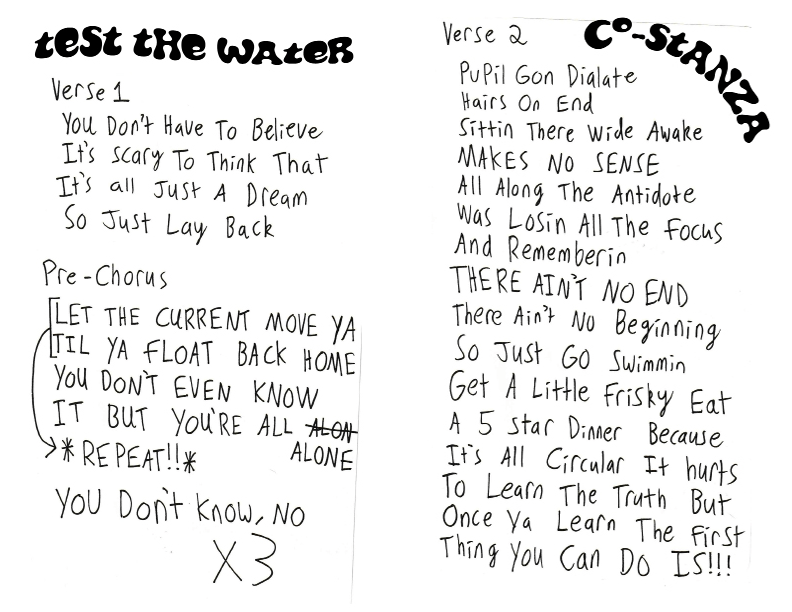 test the water
Verse 1
You Don't Have To Believe
It's scary To Think That
It's all Just A Dream
So Just Lay Back
Pre-Chorus
LET THE CURRENT MOVE YA
TIL YA FLOAT BACK HOME
YOU DON'T EVEN KNOW
IT BUT YOU'RE ALL ALON
*REPEAT!!* ALONE
YOU Don't Know, NO
X3
Verse 2
CO-STANZA
PuPil Gon Dialate
Hairs On End
Sittin There Wide Awake
MAKES NO SENSE
All Along The Antidote
Was Losin All The Focus
And Rememberin
THERE AIN'T NO END
There Ain't No Beginning
So Just GO Swimmin
Get A Little Frisky Eat
A 5 star Dinner Because
It's All Circular It hurts
To Learn The Truth But
Once Ya Learn The First
Thing You Can Do IS!!!